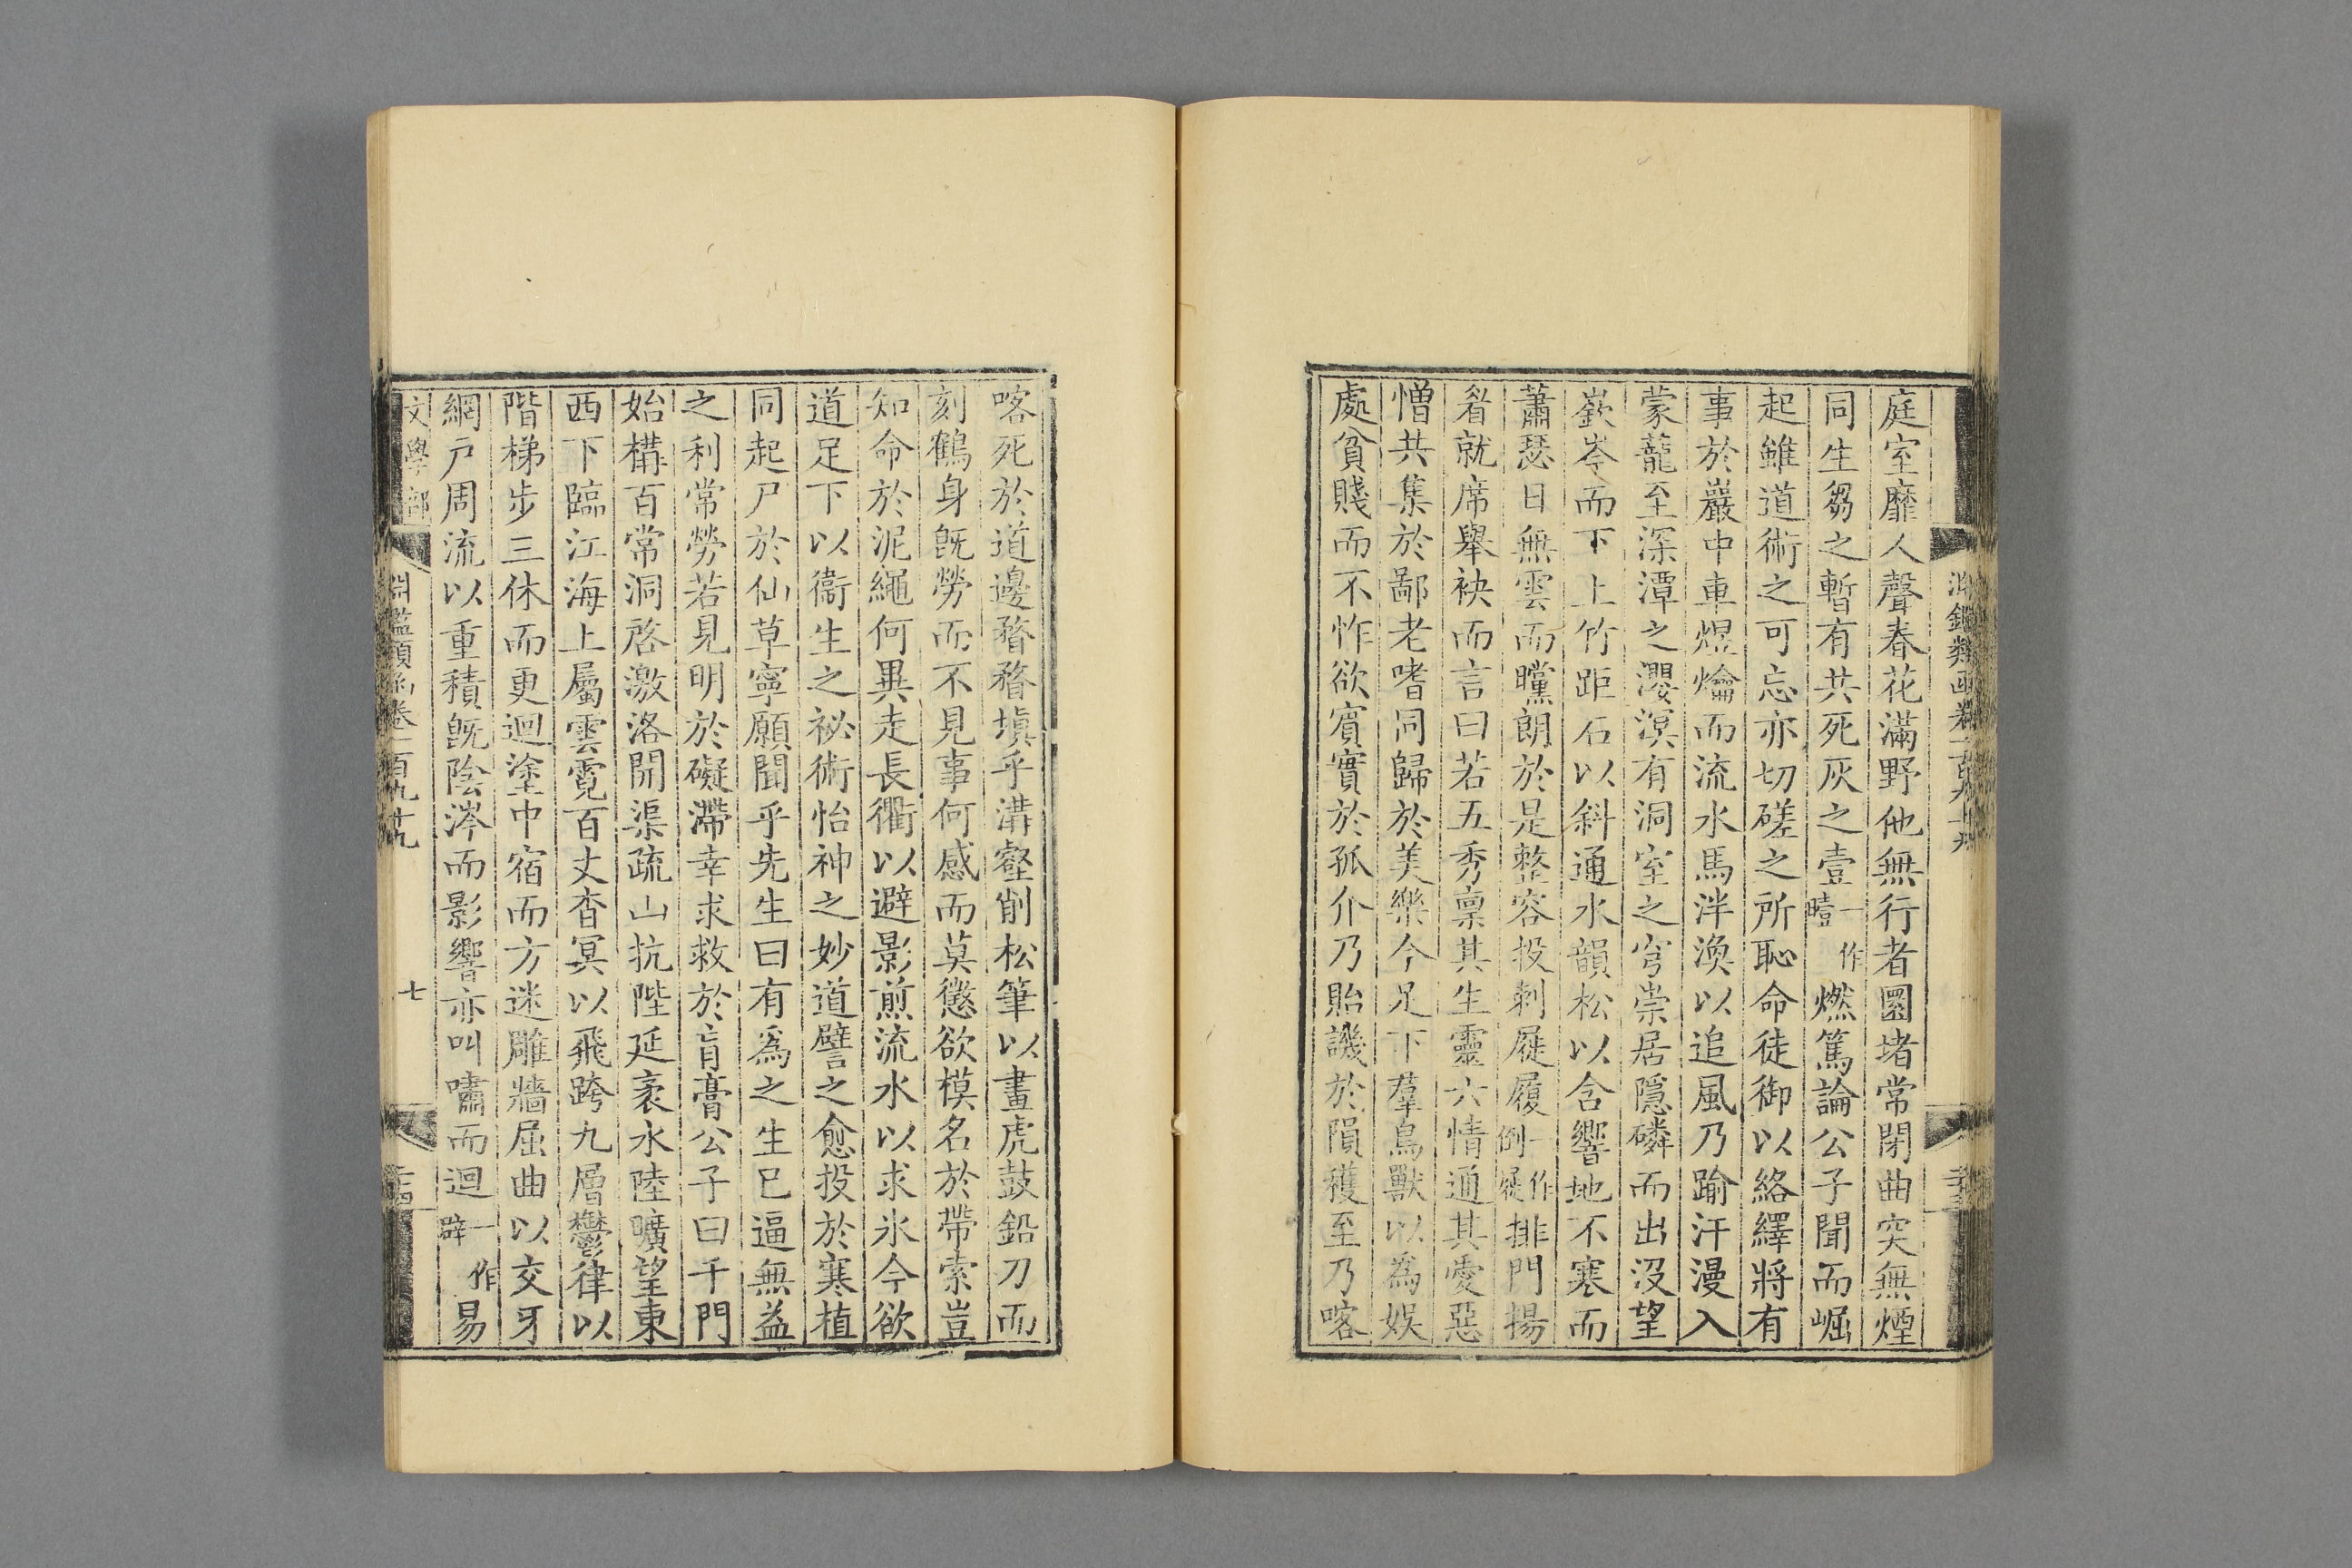 淵鑑類函卷一百九十九
庭室靡人聲春花滿野他無行者圜堵常閉曲突無煙
同生芻之暫有共死灰之壹一作曀燃篤論公子聞而崛
起雖道術之可忘亦切磋之所恥命徒御以絡繹將有
事於巖中車煜爚而流水馬泮渙以追風乃踰汗漫入
蒙蘢至深潭之瀴溟有洞室之穹崇居隱磷而出沒望
嶔岑而下上竹距石以斜通水韻松以含響地不寒而
蕭瑟日無雲而曭朗於是整容投刺屣履一作倒屣排門揚
㫺就席舉袂而言曰若五秀稟其生靈六情通其愛惡
憎共集於鄙老嗜同歸於美樂今足下羣鳥獸以為娛
處貧賤而不怍欲賓實於孤介乃貽譏於隕穫至乃喀
喀死於道邊瞀瞀塡乎溝壑削松筆以畫虎鼓鉛刀而
刻鶴身旣勞而不見事何感而莫懲欲模名於帶索豈
知命於泥繩何異走長衢以避影煎流水以求氷今欲
道足下以衞生之祕術怡神之妙道譬之愈投於寒植
同起尸於仙草寧願聞乎先生曰有爲之生已逼無益
之利常勞若見明於礙滯幸求救於肓膏公子曰千門
始構百常洞啓激洛開渠疏山抗陛延袤水陸曠望東
西下臨江海上屬雲霓百丈杳冥以飛跨九層鬱律以
階梯步三休而更迴塗中宿而方迷雕牆屈曲以交牙
網戶周流以重積旣陰涔而影響亦叫嘯而迴一作辟易
文學部
淵鑑類函卷一百九十九
七